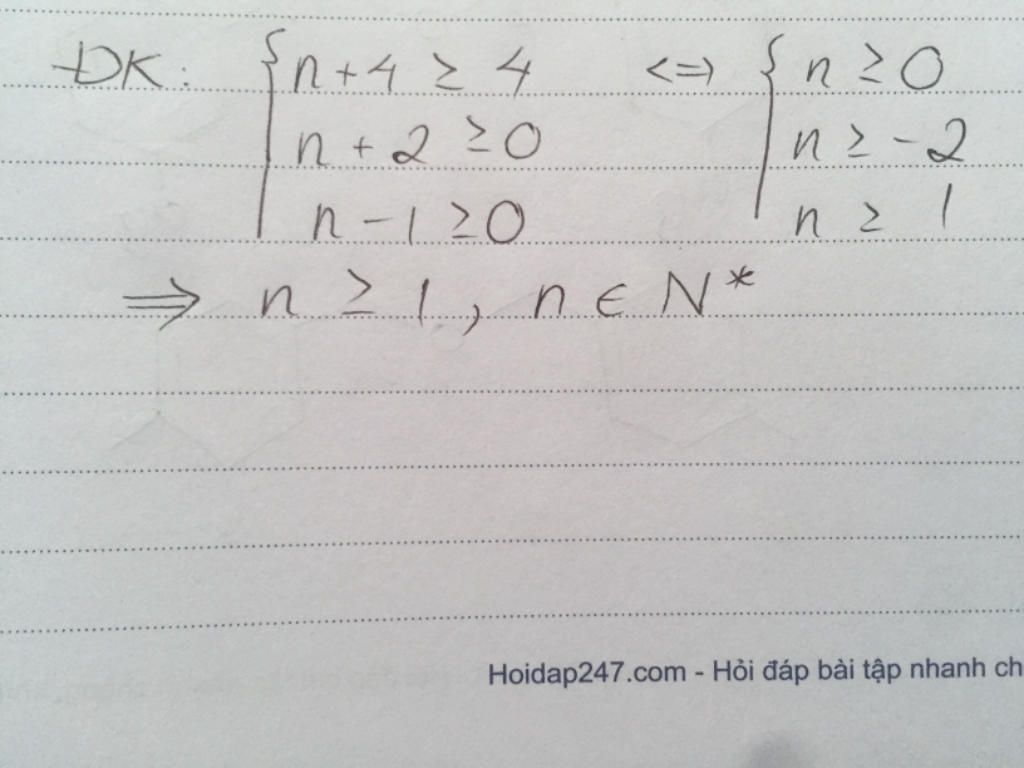 ĐK: { n + 4 ≥ 4 <=> { n ≥ 0
n + 2 ≥ 0 n ≥ -2
n - 1 ≥ 0 n ≥ 1
=> n ≥ 1, n ∈ N*
Hoidap247.com - Hỏi đáp bài tập nhanh ch